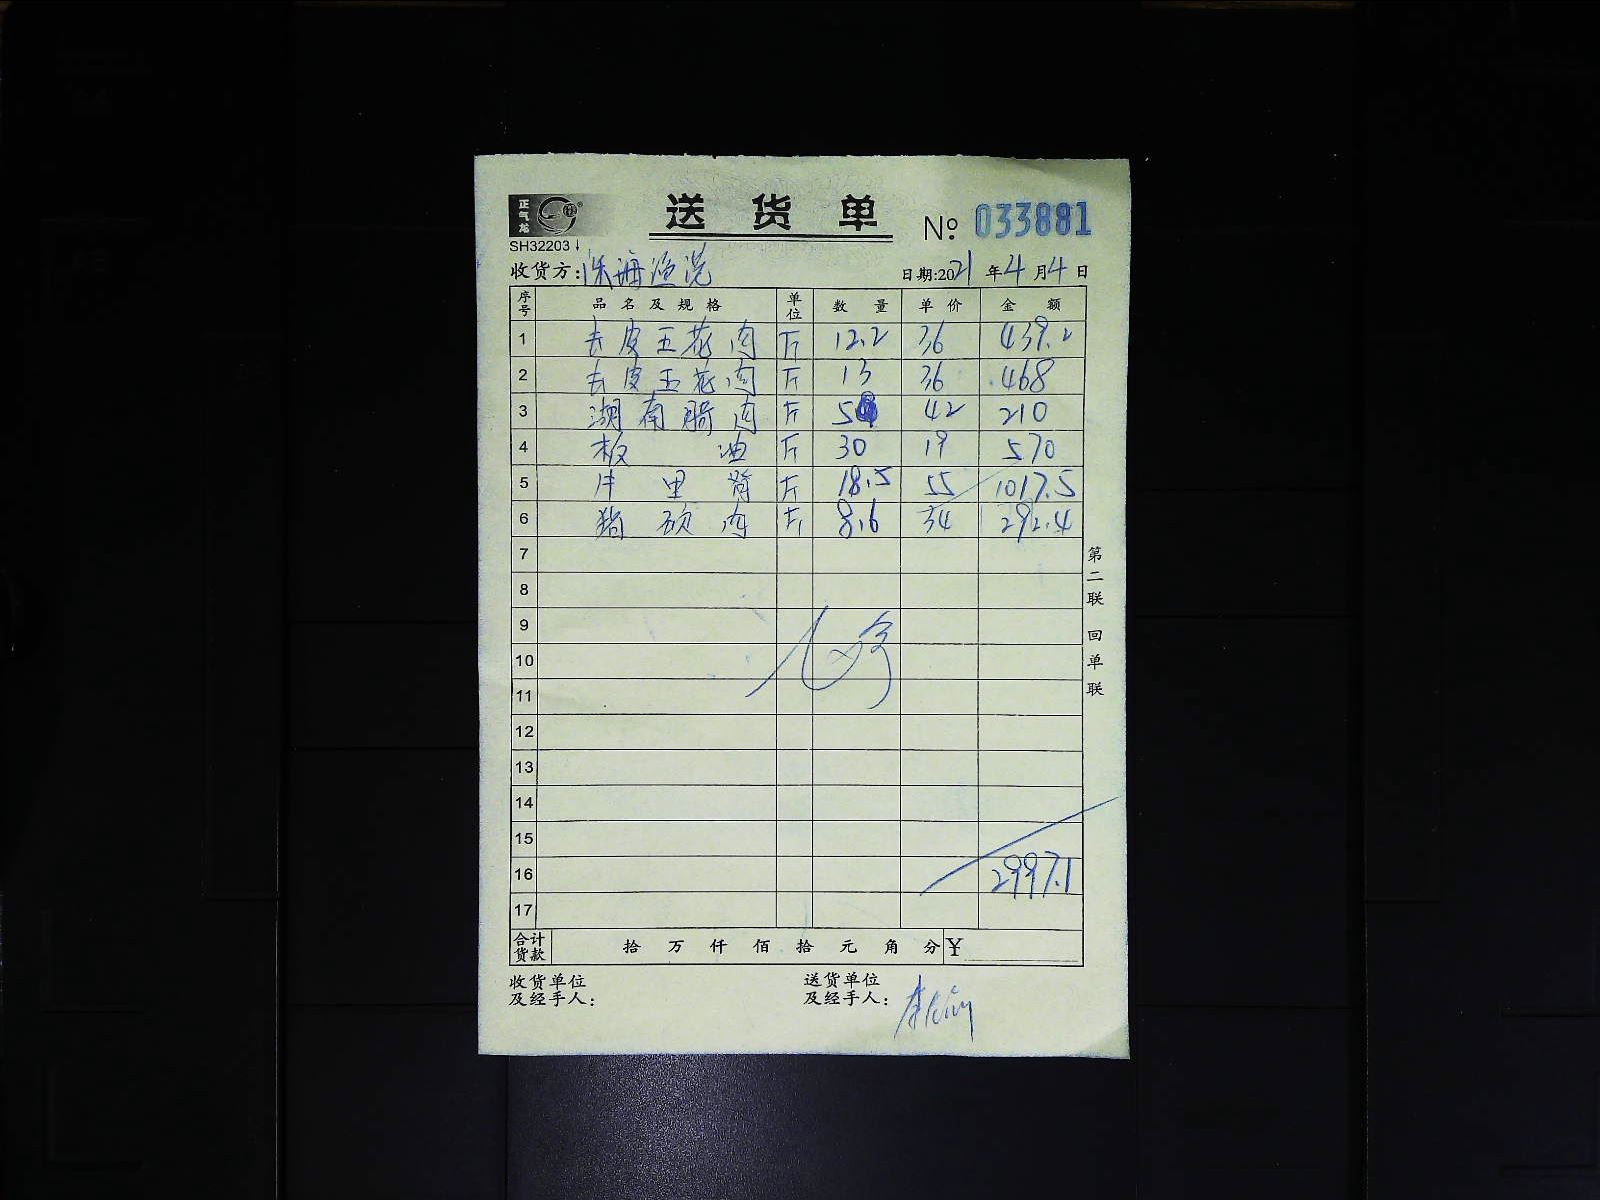 正气龙
送货单
№ 033881
SH32203
收货方: 珠海渔港
日期:2021年4月4日
序号 品名及规格 单位 数量 单价 金额
1 去皮五花肉 斤 12.2 36 439.2
2 去皮五花肉 斤 13 36 468
3 湖南腊肉 斤 5 42 210
4 板油 斤 30 19 570
5 里脊 斤 18.5 55 1017.5
6 猪颈肉 斤 8.6 34 292.4
7
8
9
10
11
12
13
14
15
16 2997.1
17
合计货款 拾万仟佰拾元角分 ¥
收货单位及经手人:
送货单位及经手人:
第二联 回单联